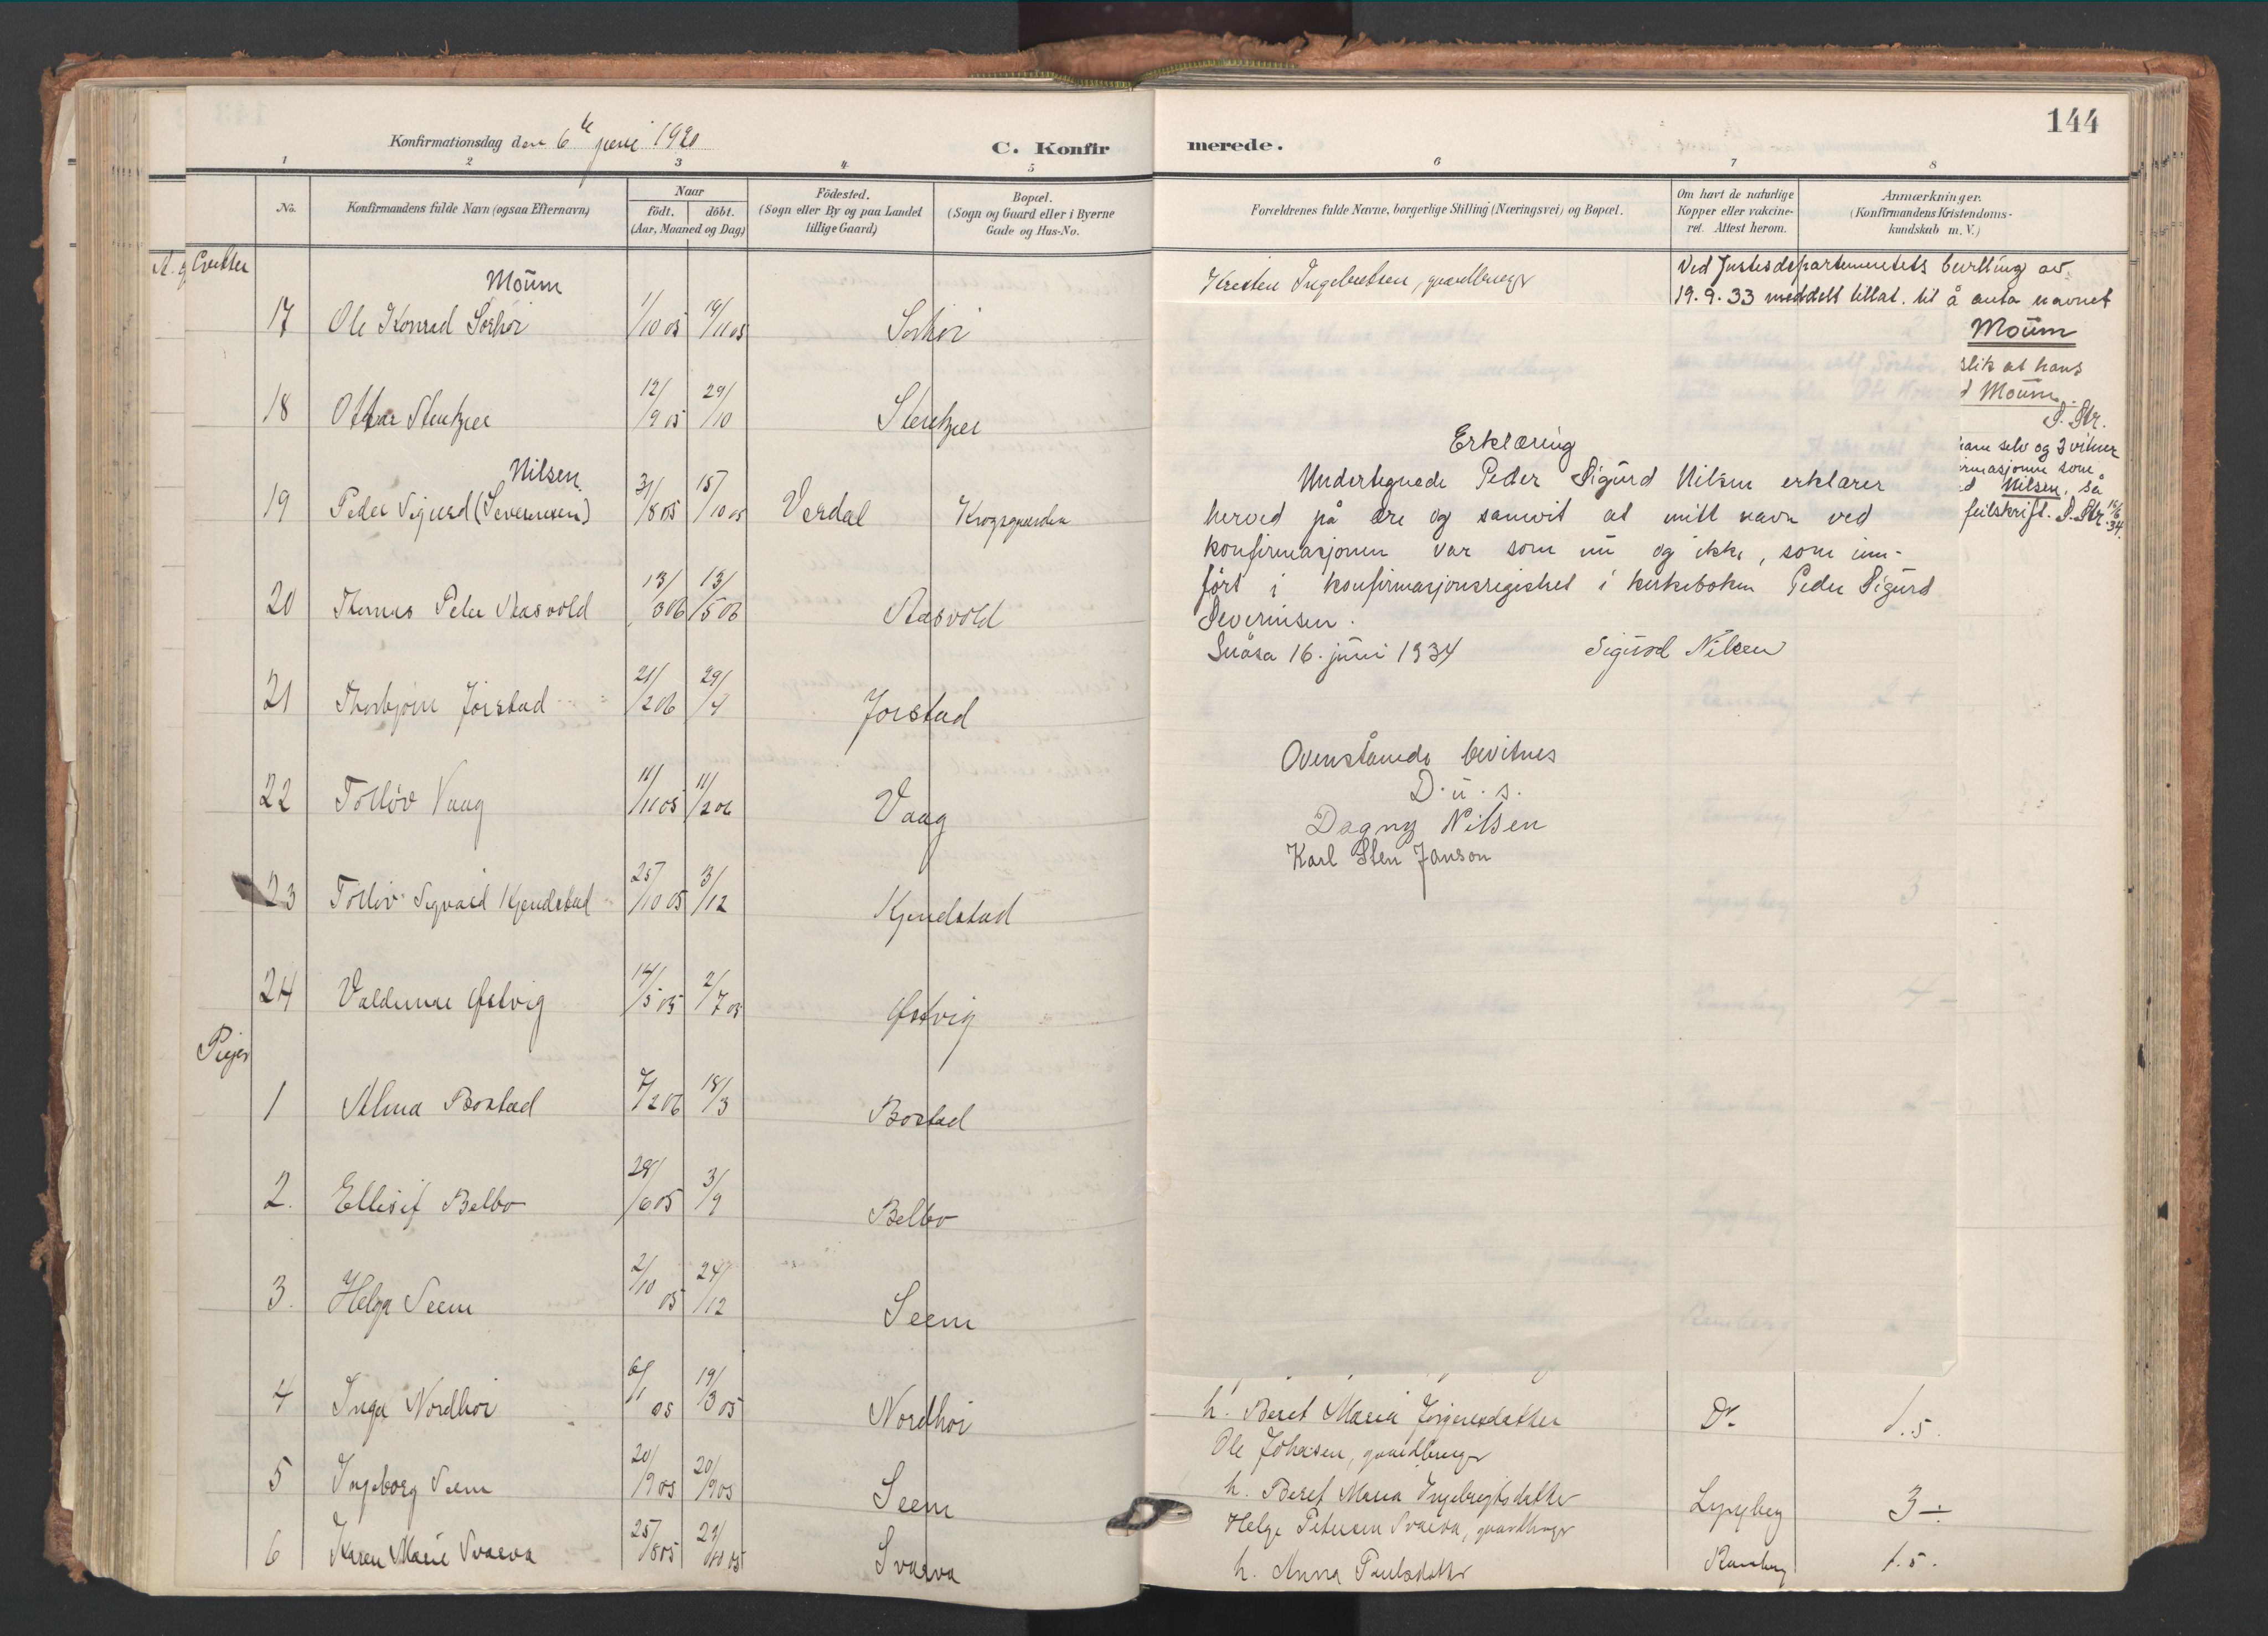 Konfirmationsdag den 6te juni 1920
C. Konfir
1 2 3 4 5
No.
Konfirmandens fulde Navn (ogsaa Efternavn)
Naar
födt. döbt.
(Aar, Maaned og Dag)
Födested.
(Sogn eller By og paa Landet
tillige Gaard)
Bopæl.
(Sogn og Gaard eller i Byerne
Gade og Hus-No.
Moum
17 Ole Konrad Sørhøi 1/10 05 19/11 05 Sørhøi
18 Ottar Steinkjer 12/9 05 29/10 Steinkjer
Nilsen
19 Peder Sigurd (Severinsen) 31/8 05 15/10 05 Verdal Krogsgaarden
20 Thomas Peter Aasvold 13/3 06 13/5 06 Aasvold
21 Thorbjørn Jørstad 21/2 06 29/4 Jørstad
22 Tolløv Vaag 11/11 05 11/2 06 Vaag
23 Tolløv Sigvard Kjendstad 25/10 05 3/12 Kjendstad
24 Valdemar Østvig 14/5 05 2/7 05 Østvig
Piger
1 Alma Bostad 7/2 06 18/3 Bostad
2. Ellisif Belbo 28/6 05 3/9 Belbo
3. Helga Seem 2/10 05 24/12 Seem
4 Inga Nordhøi 6/1 05 19/3 05 Nordhøi
5 Ingeborg Seem 20/9 05 20/9 05 Seem
6 Karen Marie Svarva 25/8 05 Svarva
144
merede.
6 7 8
Forældrenes fulde Navne, borgerlige Stilling (Næringsvei) og Bopæl.
Om havt de naturlige
Kopper eller vakcine-
ret. Attest herom.
Anmærkninger.
(Konfirmandens Kristendoms-
kundskab m. V.)
Kristen Ingebretsen, gaardbruger
Ved Justisdepartementets bevilling av
19.9.33 meddelt tillat. til å anta navnet
Moum
slik at hans
d Moum.
S. Str.
ham selv og 2 vitner
irmasjonen som
d Nilsen, så
feilskrift. S. Str. 16/6 34.
Erklæring
Undertegnede Peder Sigurd Nilsen erklærer
herved på ære og samvit at mitt navn ved
konfirmasjonen var som nu og ikke, som inn-
ført i konfirmasjonsregistret i kirkeboken Peder Sigurd
Severinsen.
Snåsa 16. juni 1934 Sigurd Nilsen
Ovenstående bevitnes
D.u.s.
Dagny Nilsen
Karl Sten Janson
h. Beret Maria Jørgensdatter Do. 1.5.
Ole Johnsen, gaardbruger
h. Beret Maria Ingebrigtsdatter Lyngberg 3÷.
Helge Petersen Svarva, gaardbruger
h. Anna Paulsdatter Ramberg 1.5.